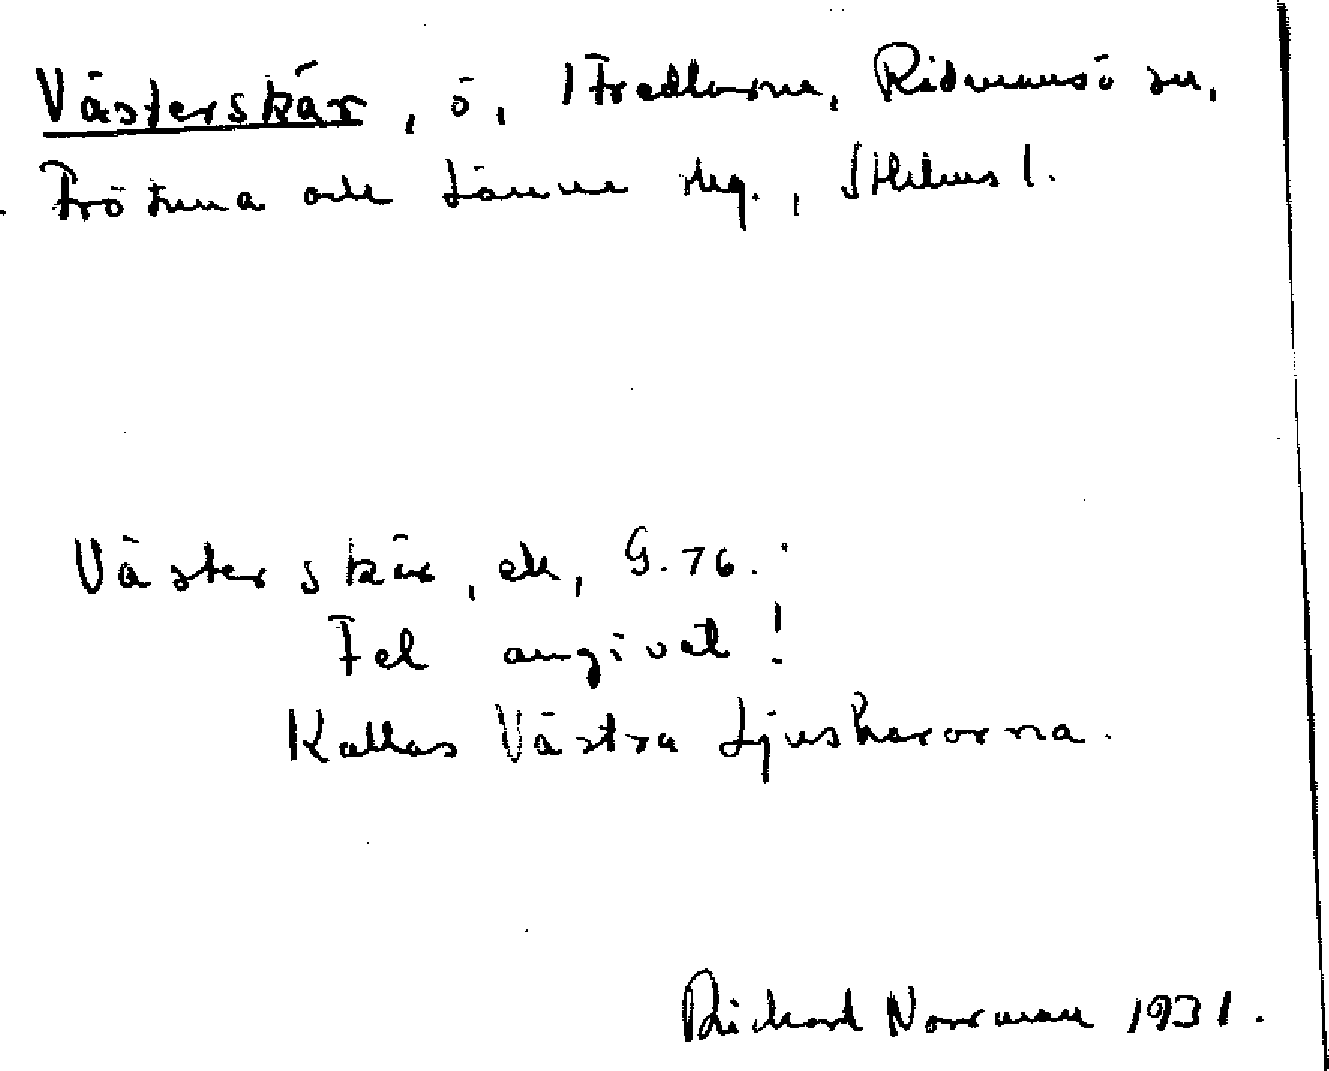 Västerskär, ö, i Fredlarna, Rådmansö sn,
Frötuna och Länna skg., Sthlms l.
Västerskär, ek, G. 76.:
Fel angivet!
Kallas Västra Ljuskararna.
Richard Norrman 1931.